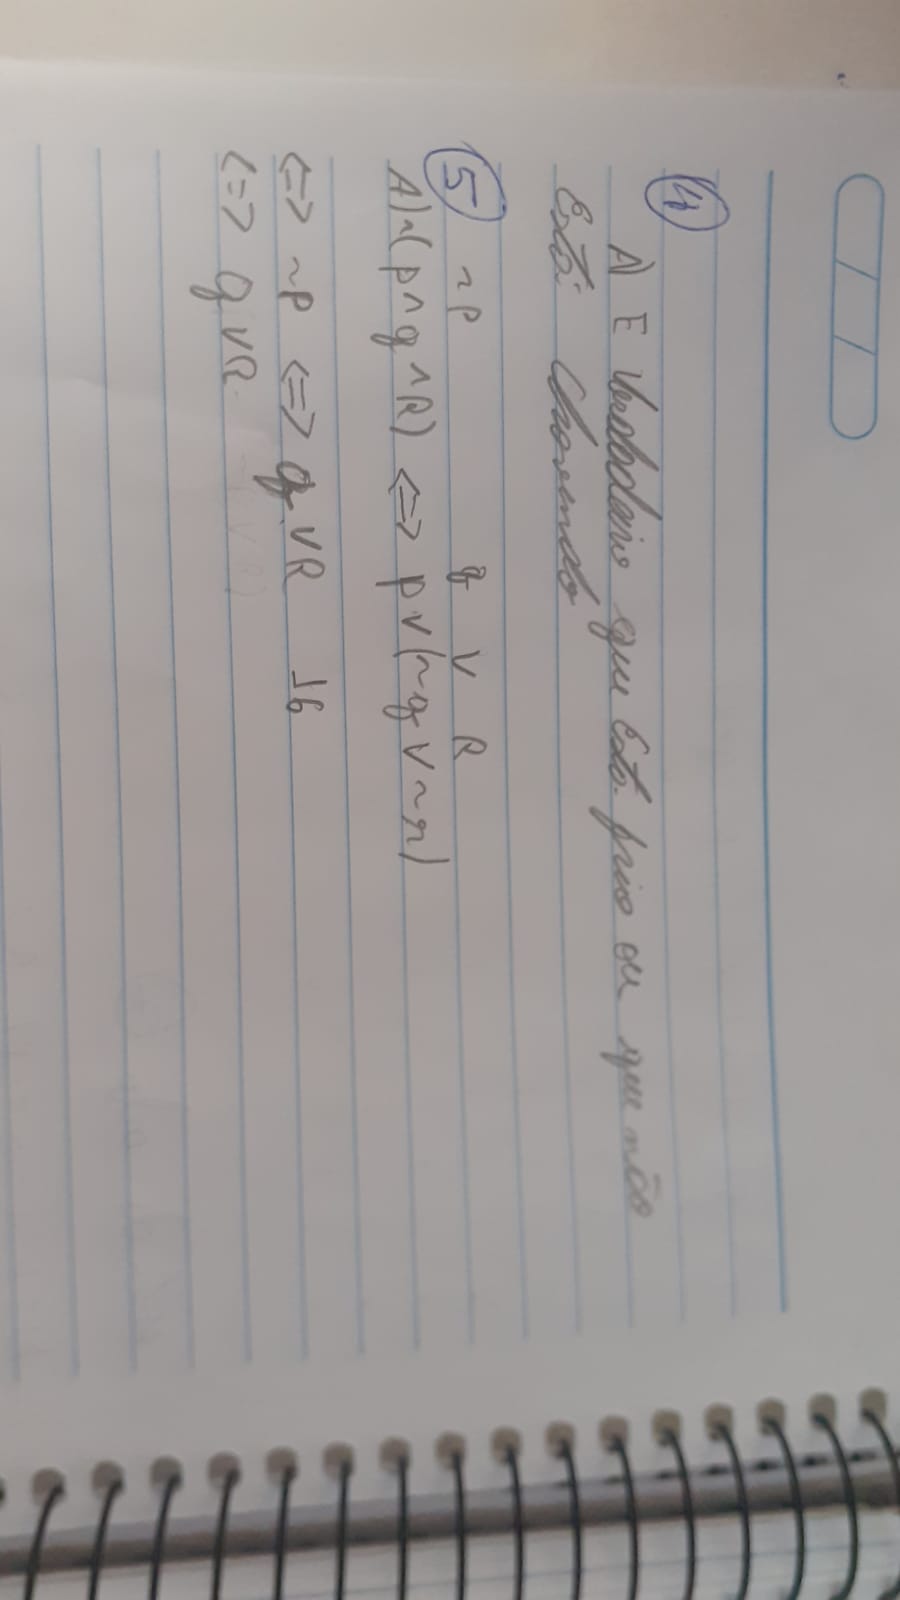 / /
4
A) E Verdadeiro que Está frio ou que não
Está Chovendo
5 ~p q V R
A) ~(p ^ q ^ R) <=> p v (~q v ~r)
<=> ~p <=> q V R
<=> q V R